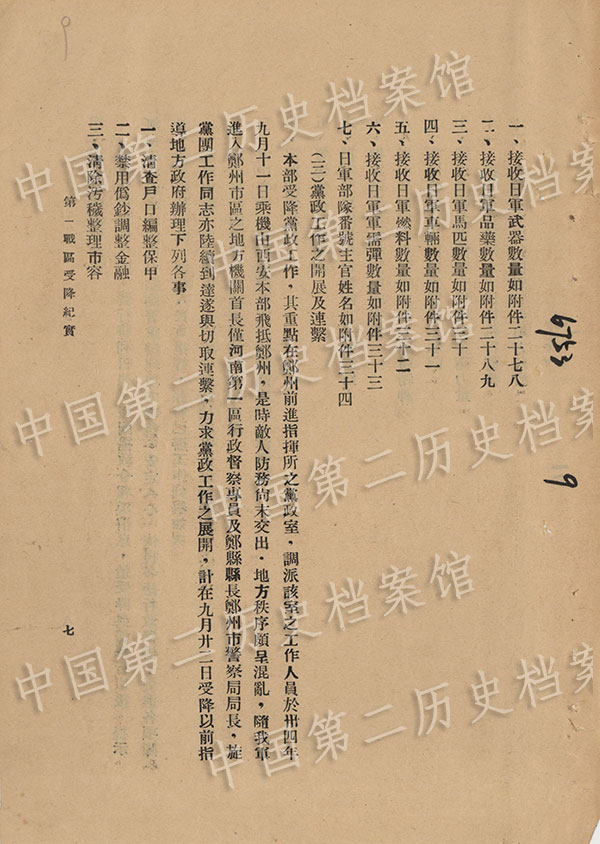 一、接收日軍武器數量如附件二十七八
二、接收日軍品藥數量如附件二十八九
三、接收日軍馬匹數量如附件三十
四、接收日軍車輛數量如附件三十一
五、接收日軍燃料數量如附件三十二
六、接收日軍軍需彈數量如附件三十三
七、日軍部隊番號主官姓名如附件三十四
(三)黨政工作之開展及連繫
本部受降黨政工作，其重點在鄭州前進指揮所之黨政室，調派該室之工作人員於卅四年
九月十一日乘機由西安本部飛抵鄭州，是時敵人防務尚未交出．地方秩序頗呈混亂，隨我軍
進入鄭州市區之地方機關首長僅河南第一區行政督察專員及鄭縣縣長鄭州市警察局局長，旋
黨團工作同志亦陸續到達遂與切取連繫，力求黨政工作之展開，計在九月廿二日受降以前指
導地方政府辦理下列各事．
一、清查戶口編整保甲
二、禁用偽鈔調整金融
三、清除污穢整理市容
第一戰區受降紀實
七
6753
9
9
中国第二历史档案馆
中国第二历史档案馆
中国第二历史档案馆
中国第二历史档案馆
中国第二历史档案馆
中国第二历史档案馆